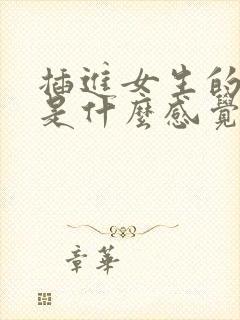 插進女生的
是什麼感覺
章華